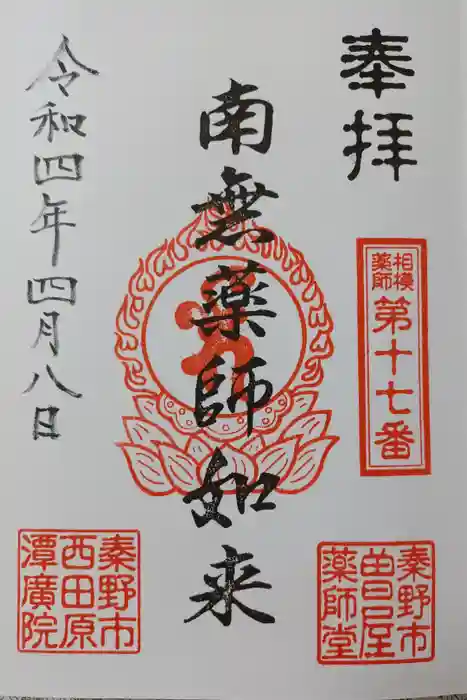 奉拝
相模
薬師
第十七番
南無薬師如来
令和四年四月八日
秦野市
曽屋
薬師堂
秦野市
西田原
潭廣院